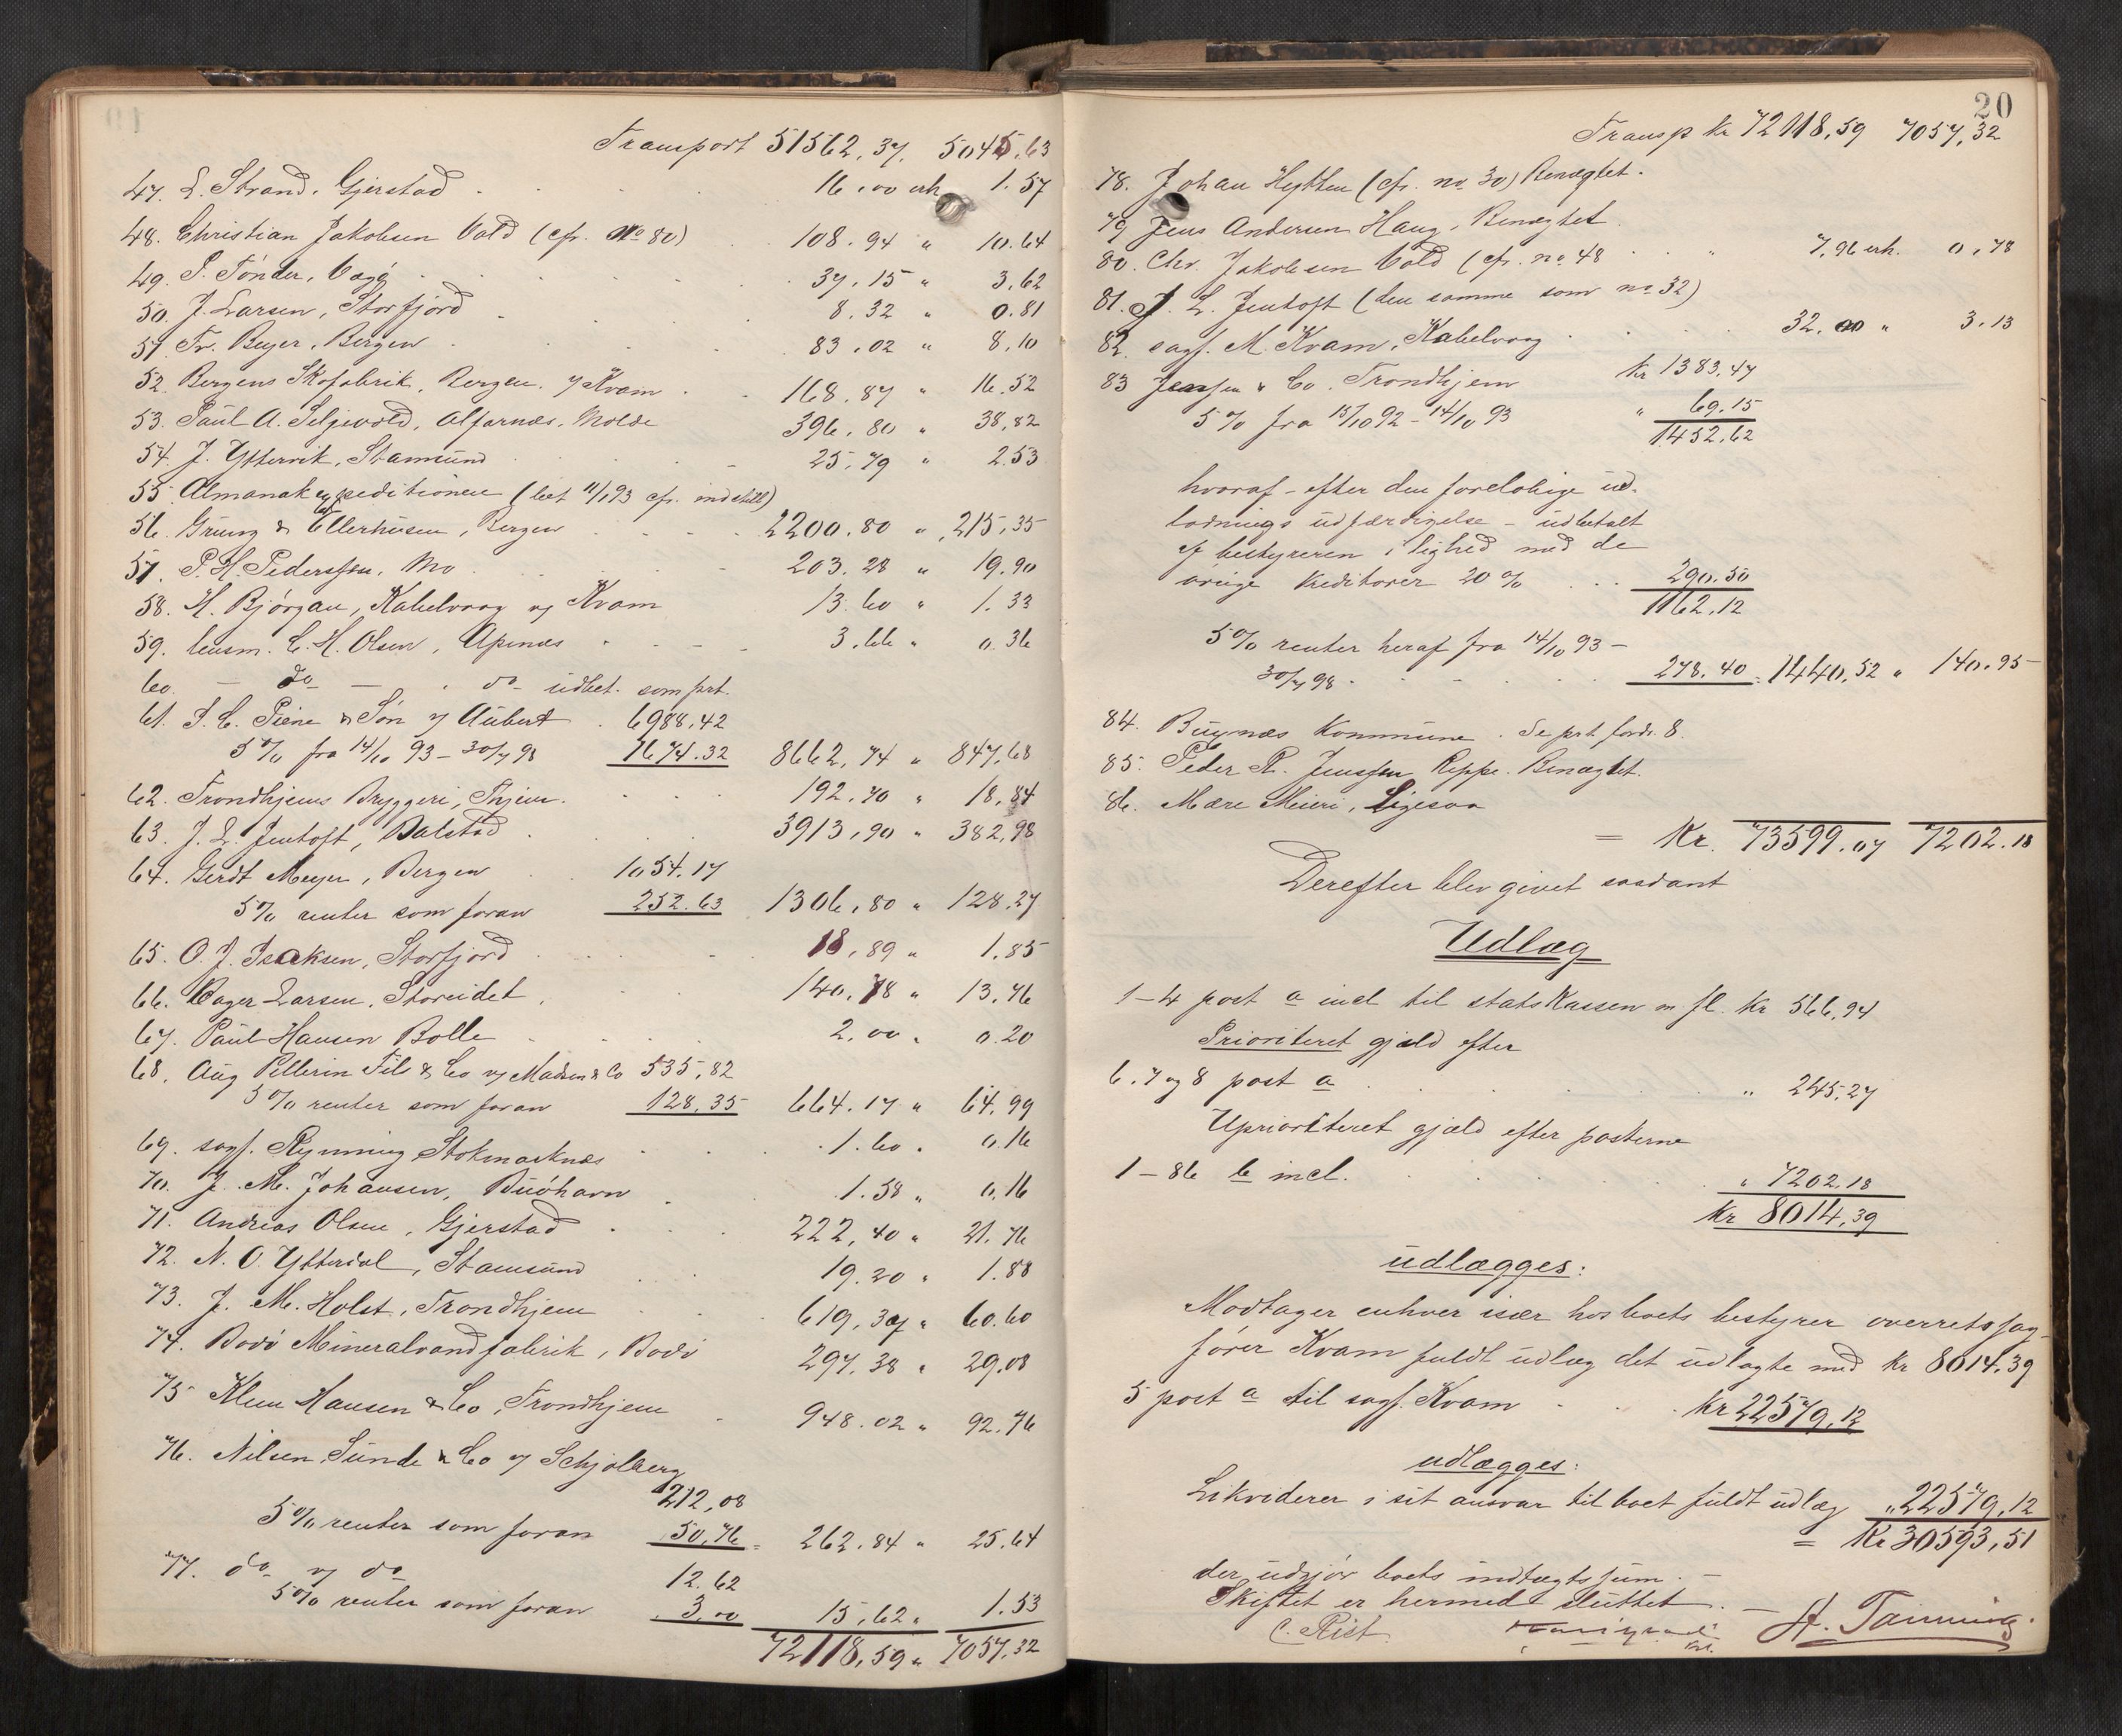 Transport 51562,37. 5045,63
47. L. Strand, Gjerstad . 16,00 erh. 1.57
48. Christian Jakobsen Vold (cfr. No 80) 108.94 " 10.64
49. P. Tönder, Vaagö 37,15 " 3,62
50. J. Larsen, Storfjord 8.32 " 0.81
51 Fr. Beyer, Bergen 83,02 " 8,10
52. Bergens Skofabrik, Bergen v/ Kvam 168,87 " 16.52
53. Paul A. Seljevold, Alfarnæs, Molde 396,80 " 38,82
54. J. Yttervik, Stamsund 25,79 " 2.53
55. Almanakexpeditionen (bet 11/1 93 cfr. indstill)
56. Grung & Ellerhusen, Bergen 2200.80 " 215,35
57. P. H. Pederssen, Mo 203.28 " 19.90
58. H. Björgan, Kabelvaag v/ Kvam 13.60 " 1.33
59. lensm. C. H. Olsen, Apenæs 3.66 " 0.36
60. — do — . do udbet. som prt.
61. I. C. Piene & Sön v/ Aubert . 6988,42
5 % fra 14/10 93 – 30/7 98 1674.32 8662,74 " 847,68
62. Trondhjems Bryggeri, Thjem. 192.70 " 18,84
63. J. L. Jentoft, Balstad 3913,90 " 382,98
64. Gerdt Meyer, Bergen 1054.17
5 % renter som foran 252.63 1306,80 " 128.27
65. O. J. Isaksen, Storfjord 18,89 " 1.85
66. Hager Larsen, Storeidet 140.78 " 13.76
67. Paul Hansen Bolle 2,00 " 0.20
68. Aug Pellerin Fils & Co v/ Madsen & Co 535,82
5 % renter som foran 128,35 664.17 " 64,99
69. sagf. Rynning, Stokmarknæs 1.60 " 0.16
70. J. M. Johansen, Buöhavn 1.58 " 0,16
71. Andreas Olsen, Gjerstad 222,40 " 21.76
72. N. O. Ytterdal, Stamsund 19.20 " 1.88
73. J. M. Holst, Trondhjem 619,37 " 60.60
74. Bodö Mineralvandfabrik, Bodö 297,38 " 29,08
75 Klem Hansen & Co, Trondhjem 948.02 " 92.76
76. Nilsen, Sunde & Co v/ Schjolberg
212,08
5 % renter som foran 50,76 = 262.84 " 25.64
77. do v/ do 12.62
5 % renter som foran 3,00 15,62 " 1.53
72118,59 " 7057,32
20
Transp kr 72118,59 7057,32
78. Johan Hytten (cfr. no 30) Benægtet.
79 Jens Andersen Haug, Benægtet
80. Chr. Jakobsen Vold (cfr. no 48 7,96 erh. 0,78
81. J. L. Jentoft (den samme som no 32)
82. sagf. M. Kvam, Kabelvaag 32,00 " 3.13
83 Jenssen & Co, Trondhjem kr 1383,47
5 % fra 15/10 92 – 14/10 93 " 69.15
1452,62
hvoraf – efter den forelobige ud-
lodnings udfærdigelse – udbetalt
af bestyreren i lighed med de
övrige kreditorer 20 % . . 290.50
1162,12
5 % renter heraf fra 14/10 93 –
30/7 98 278.40 = 1440,52 " 140.95
84. Buxnæs Kommune . Se prt fordr. 8.
85. Peder R. Jenssen Reppe. Benægtet.
86. Mære Meieri, Ligesaa
= Kr. 73599.07 7202.18
Derefter blev givet saadant
Udlæg
1–4 post a incl til statskassen m fl. kr 566,94
Prioriteret gjæld efter
6. 7 og 8 post a " 245,27
Uprioriteret gjæld efter posterne
1 – 86 b incl. " 7202,18
kr 8014,39
udlægges:
Modtager enhver især hos boets bestyrer overretssag-
förer Kvam fuldt udlæg det udlagte med kr 8014.39
5 post a til sagf. Kvam . . kr 22579,12
udlægges:
Likviderer i sit ansvar til boet fuldt udlæg " 22579,12
= Kr 30593,51
der udgjör boets indtægtssum. –
Skiftet er hermed sluttet. –
C. Rist A. Tanning.